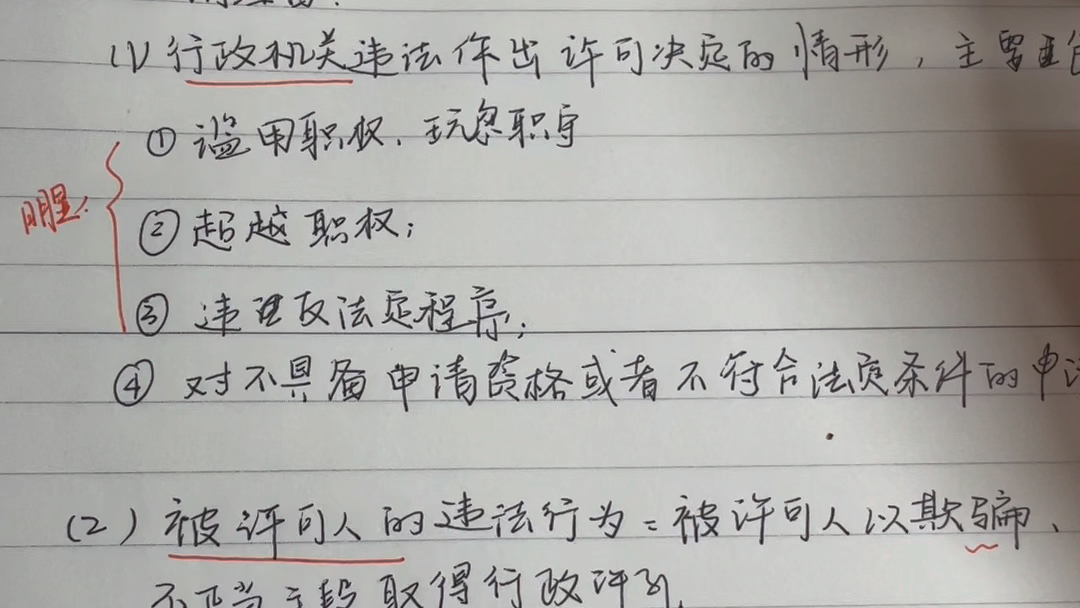 (1) 行政机关违法作出许可决定的情形，主要
① 滥用职权、玩忽职守
明显：
② 超越职权；
③ 违反法定程序；
④ 对不具备申请资格或者不符合法定条件的申
(2) 被许可人的违法行为：被许可人以欺骗、
不正当手段取得行政许可